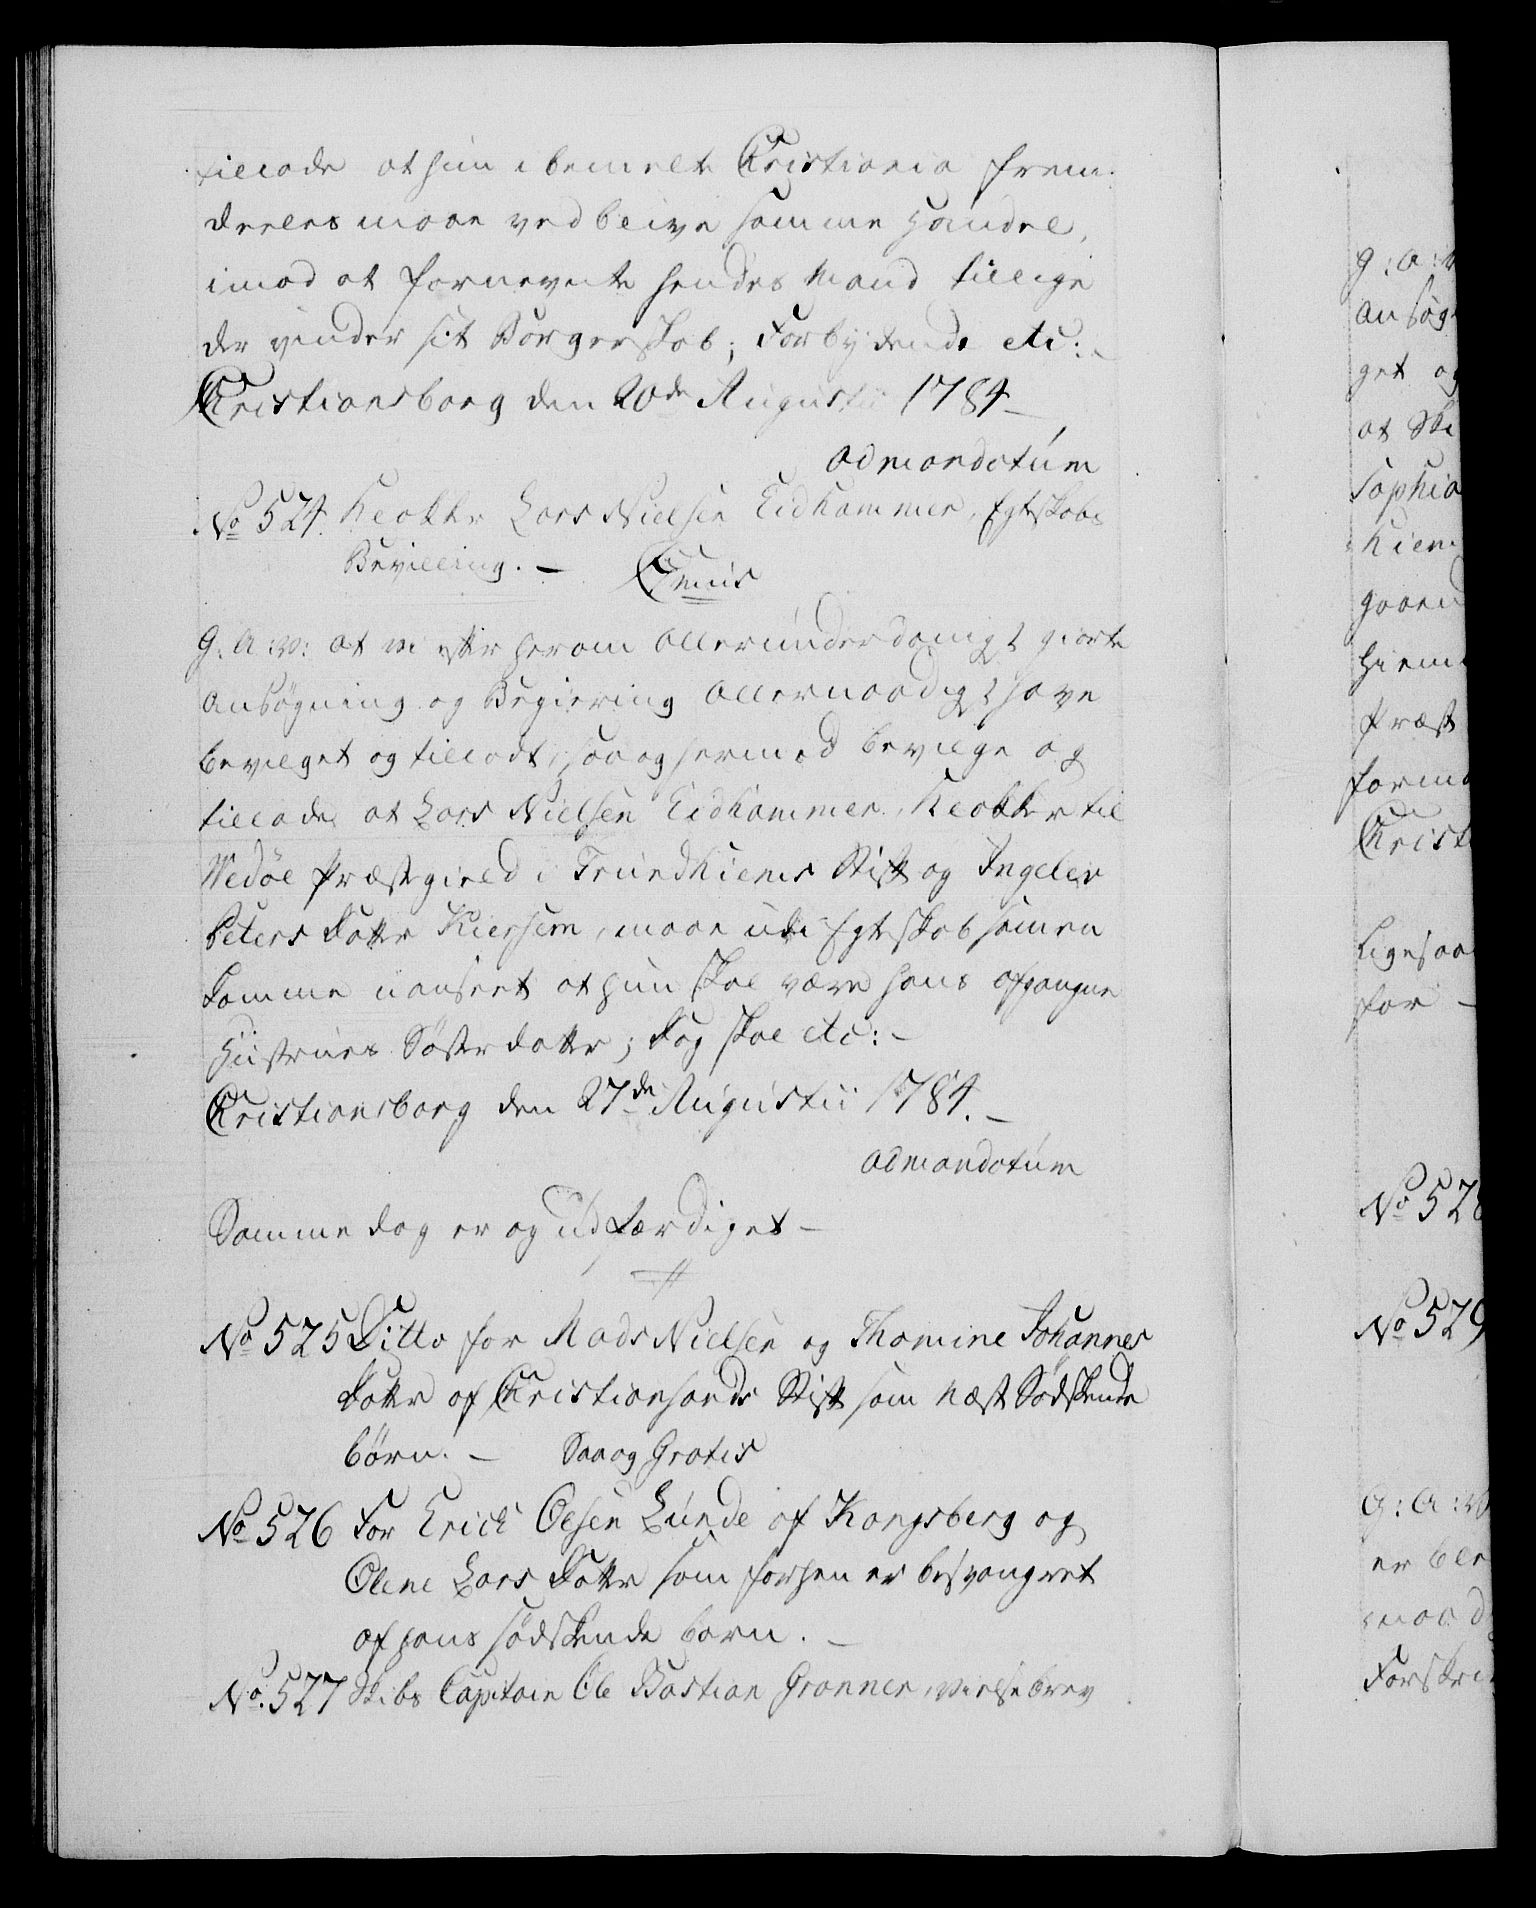 tillade at hun i bemelte Christiania frem-
deeles maae vedblive samme Handel,
imod at fornevnte hendes Mand tillige
der vinder sit Borgerskab; Forbydende etc:
Christiansborg den 20de Augustii 1784
ad mandatum
No 524. Klokker Lars Nielsen Eidhammer, Egteskabs
Bevilling. — Gratis
G: A: V: at vi efter herom allerunderdanigst giorte
Ansøgning og Begiering allernaadigst have
bevilget og tilladt, saa og hermed bevilge og
tillade, at Lars Nielsen Eidhammer, Klokker til
Wedøe Præstegield i Trundhiems Stift og Ingelev
Peters Datter Kiersem, maae udi Egteskab sammen
komme uanseet at hun skal være hans afgangne
Hustrues Søster datter; dog skal etc: —
Christiansborg den 27de Augustii 1784. —
ad mandatum
Samme dag er og udfærdiget —
No 525 Ditto for Mads Nielsen og Thomine Johannes
Datter af Christiansands Stift som Næst Sødskende
børn. — Saa og Gratis
No 526 For Erich Olsen Lunde af Kongsberg og
Olene Lars Datter som forhen er besvangret
af hans sødskende barn. —
No. 527 Skibs Capitain Ole Bastian Grønner, Vielse brev
G: A: V
Ansøg
get og
at Ski
Sophia
Kiem
gaaen
hiem
Præst
forme
Christ
Ligesaa
for —
No 528
No 529
G: A: V
er ble
maa d
Forskri